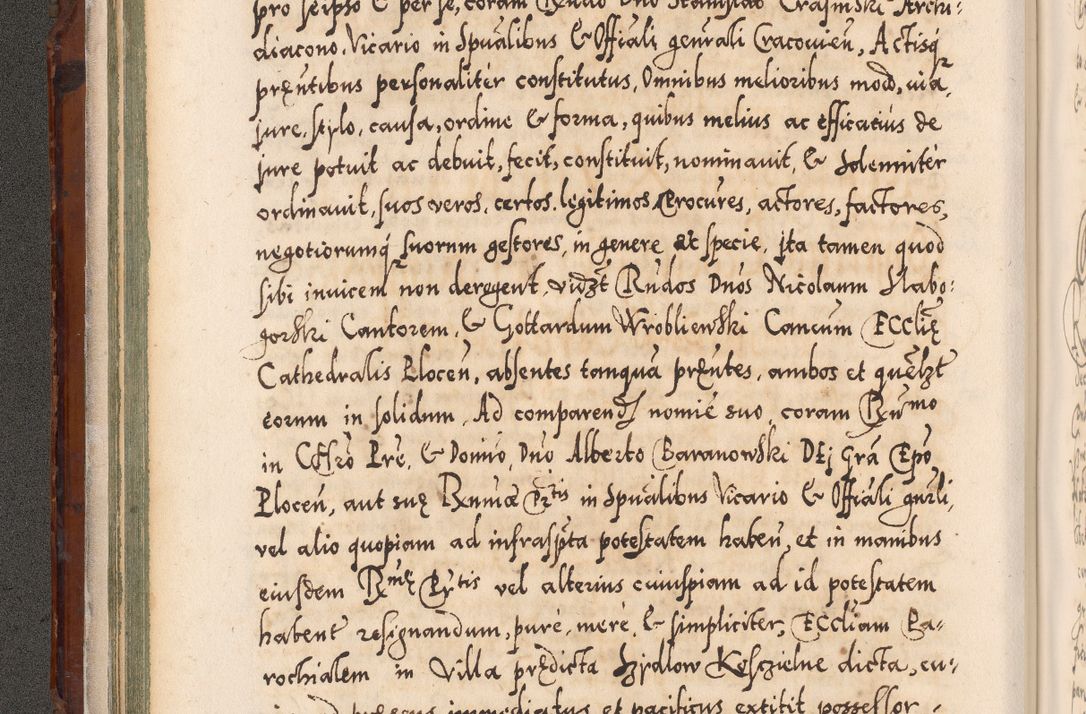 pro seipso & per se, coram Rndo Dno Stanislao Crasinski Archi:
diacono, Vicario in Spũalibus & Offiali genrali Cracovień, Actisq
pręntibus personaliter constitutus, Omnibus melioribus modo, via,
jure, stylo, causa, ordine & forma, quibus melius ac efficacius de
jure potuit ac debuit, fecit, constituit, nominavit, & solemniter
ordinavit, suos veros, certos, legitimos Procures, actores, factores,
negotiorumq suorum gestores, in genere et specie, Jta tamen quod
sibi invicem non derogent, vidzt Rndos Dnos Nicolaum Slabo:
gorski Cantorem, & Gottardum Wrobliewski Cancum Ecclię
Cathedralis Plocen, absentes tanquã pręntes, ambos et quẽlzt
eorum in solidum, Ad comparend nomiẽ suo, coram Rmo
in Chro Pre, & Domino, Dno Alberto Baranowski Dei Grã Epo
Plocen, aut suę Rnmæ Ptis in Spũalibus Vicario & Offiãli gnrli,
vel alio quopiam ad infraspta potestatem habeń, et in manibus
eiusdem Rmę Ptis vel alterius cuiuspiam ad id potestatem
habent resignandum, purè, merè, & simpliciter, Eccliam Pa=
rochialem in Villa prędicta Szydlow Kosczielne dicta, cu=
immediatus et pacificus extitit possessor